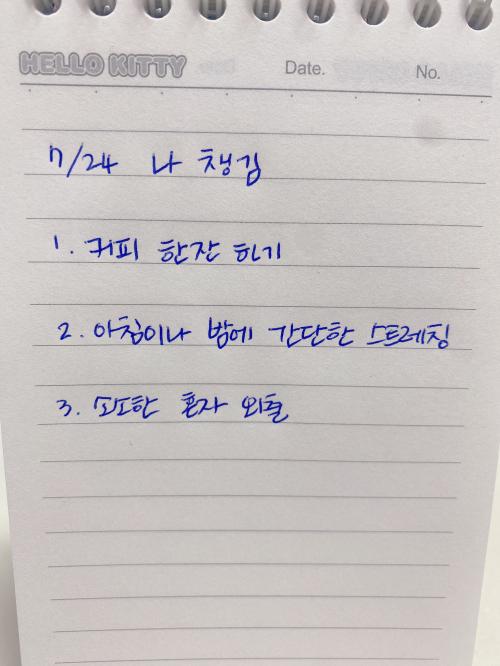 HELLO KITTY Date. No.
7/24 나 챙김
1. 커피 한잔 하기
2. 아침이나 밤에 간단한 스트레칭
3. 소소한 혼자 외출